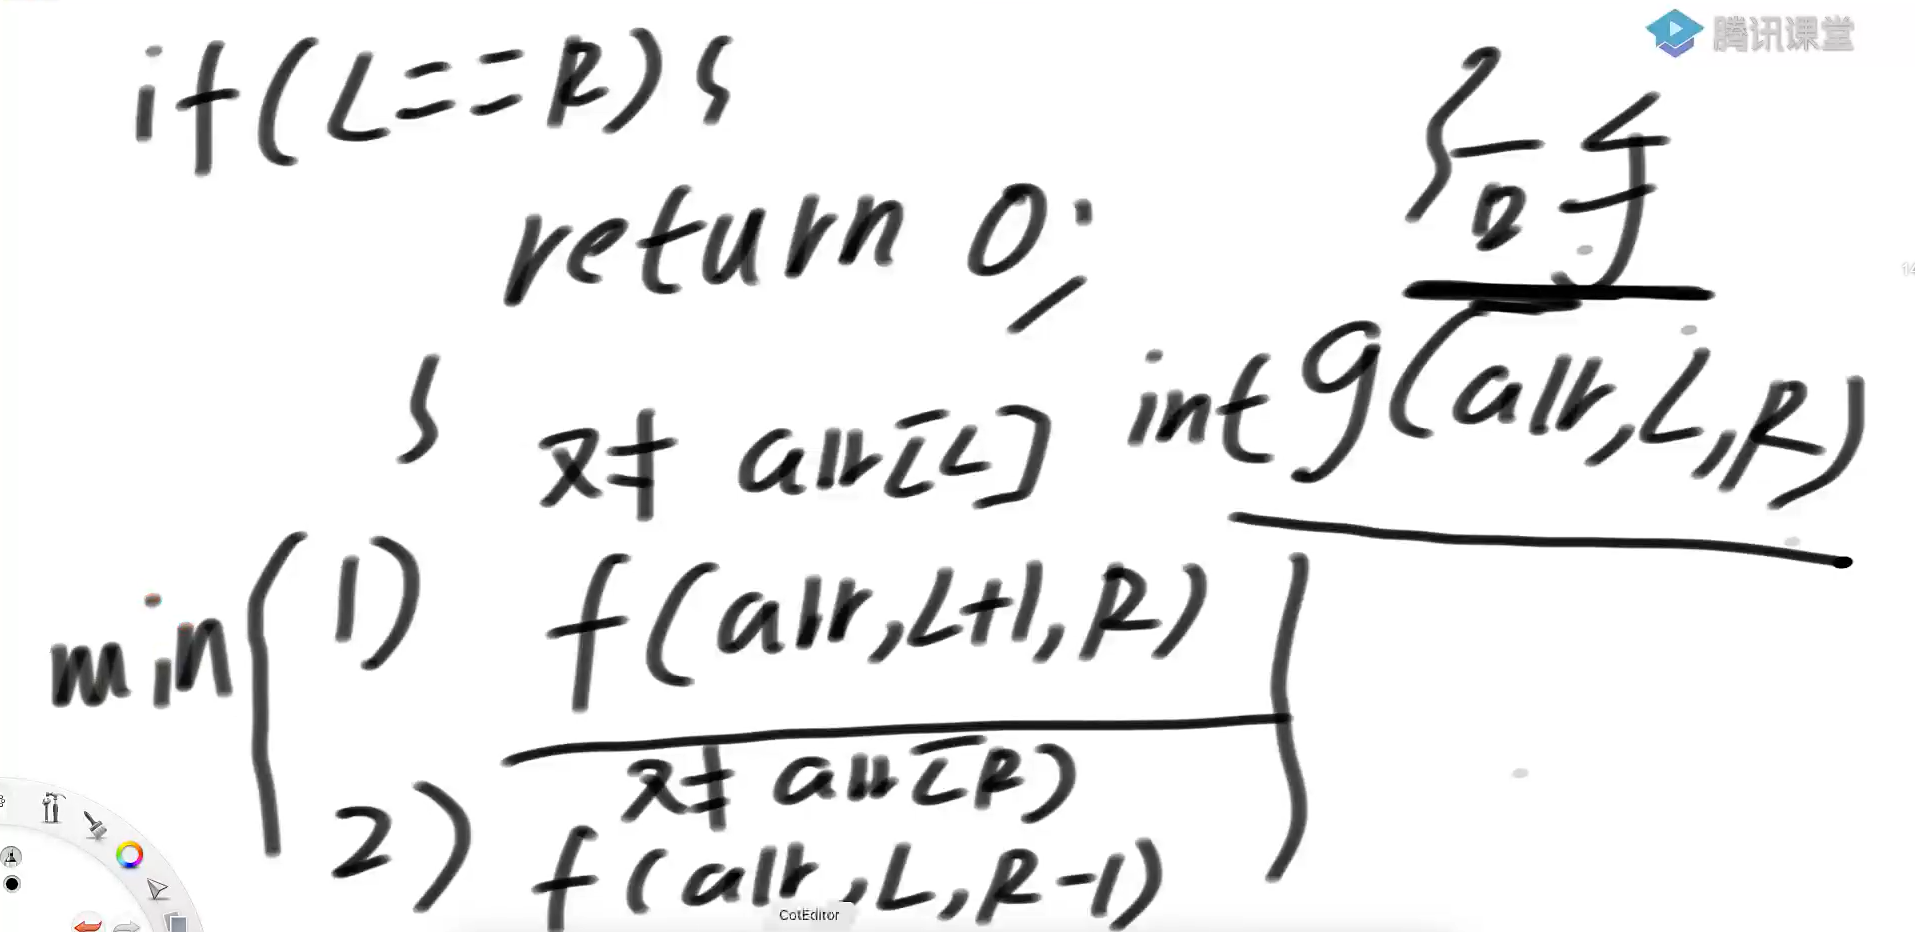 腾讯课堂
if(L==R){
return 0;
}
后手
int g(arr,L,R)
对手 arr[L]
min{
1) f(arr,L+1,R)
对手 arr[R]
2) f(arr,L,R-1)
}
CotEditor